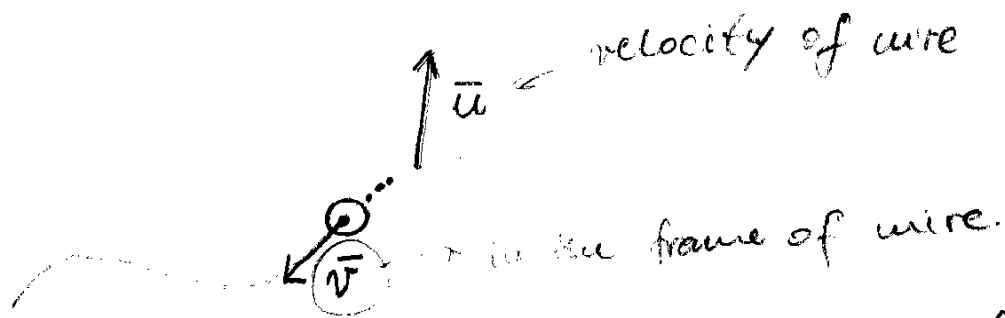 velocity of wire
ū
v̄ in the frame of wire.